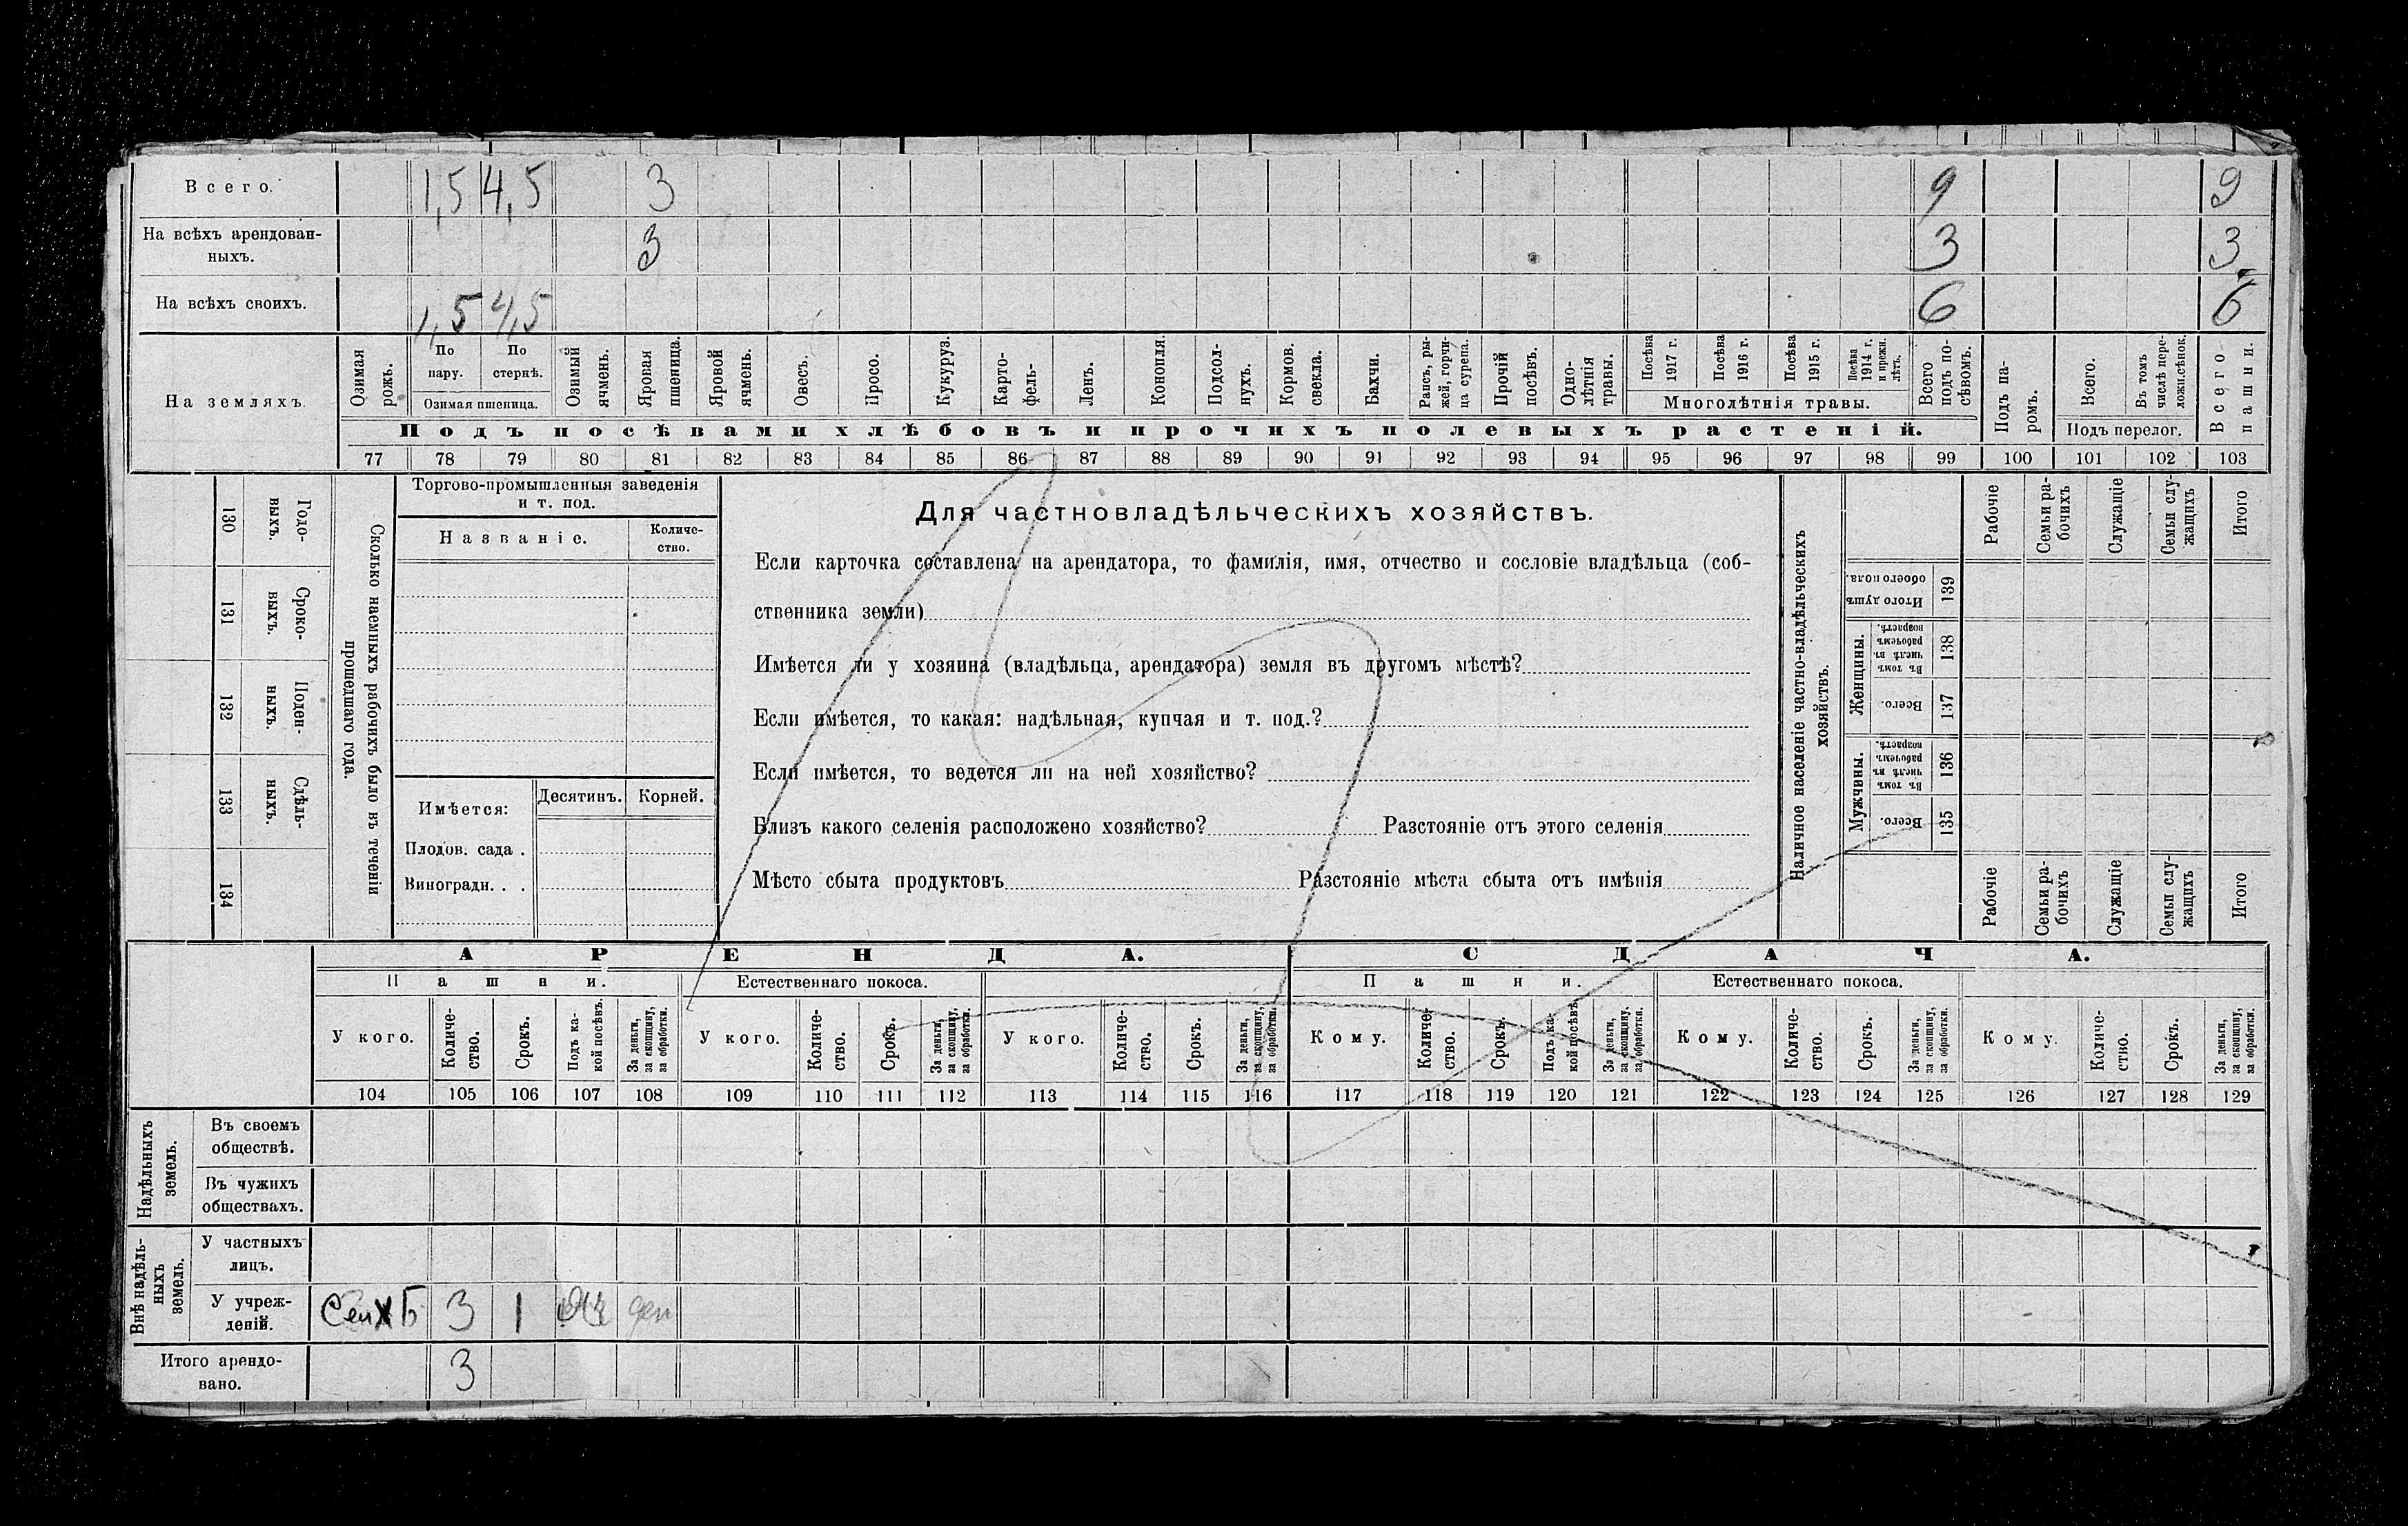 Всего. 1,5 4,5 3 9 9
На всѣхъ арендован-
ныхъ. 3 3 3
На всѣхъ своихъ. 1,5 4,5 6 6
На земляхъ.
Озимая рожь.
По пару.
По стернѣ.
Озимая пшеница.
Озимый ячмень.
Яровая пшеница.
Яровой ячмень.
Овесъ.
Просо.
Кукуруз.
Карто-
фель-
Ленъ.
Конопля.
Подсол-
нухъ.
Кормов.
свекла.
Бахчи.
Рапсъ, ры-
жей, горчи-
ца сурепа.
Прочій
посѣвъ.
Одно-
лѣтнія
травы.
Посѣва
1917 г.
Посѣва
1916 г.
Посѣва
1915 г.
Посѣва
1914 г.
и прежн.
лѣтъ.
Многолѣтнія травы.
Всего
подъ по-
сѣвомъ.
Подъ па-
ромъ.
Всего.
Въ томъ
числѣ пере-
ложн.сѣнок.
Подъ перелог.
Всего
пашни.
Подъ посѣвами хлѣбовъ и прочихъ полевыхъ растеній.
77 78 79 80 81 82 83 84 85 86 87 88 89 90 91 92 93 94 95 96 97 98 99 100 101 102 103
130 Годо-
выхъ.
131 Сроко-
выхъ.
132 Поден-
ныхъ.
133 Сдѣль-
ныхъ.
134
Сколько наемныхъ рабочихъ было въ теченіи
прошедшаго года.
Торгово-промышленныя заведенія
и т. под.
Названіе.
Количе-
ство.
Имѣется:
Десятинъ. Корней.
Плодов. сада .
Виноградн. . .
Для частновладѣльческихъ хозяйствъ.
Если карточка составлена на арендатора, то фамилія, имя, отчество и сословіе владѣльца (соб-
ственника земли)
Имѣется ли у хозяина (владѣльца, арендатора) земля въ другомъ мѣстѣ?
Если имѣется, то какая: надѣльная, купчая и т. под.?
Если имѣется, то ведется ли на ней хозяйство?
Близъ какого селенія расположено хозяйство? Разстояніе отъ этого селенія
Мѣсто сбыта продуктовъ Разстояніе мѣста сбыта отъ имѣнія
Наличное населеніе частно-владѣльческихъ
хозяйствъ.
Итого душъ
обоего пола.
139
Женщины.
Въ томъ
числѣ въ
рабочемъ
возрастѣ.
138
Всего.
137
Мужчины.
Въ томъ
числѣ въ
рабочемъ
возрастѣ.
136
Всего.
135
Рабочіе
Семьи ра-
бочихъ
Служащіе
Семьи слу-
жащихъ
Итого
Рабочіе
Семьи ра-
бочихъ
Служащіе
Семьи слу-
жащихъ
Итого
АРЕНДА. СДАЧА.
Пашни. Естественнаго покоса. Пашни. Естественнаго покоса.
У кого.
Количе-
ство.
Срокъ.
Подъ ка-
кой посѣвъ.
За деньги,
за скопщину,
за обработки.
У кого.
Количе-
ство.
Срокъ.
За деньги,
за скопщину,
за обработки.
У кого.
Количе-
ство.
Срокъ.
За деньги,
за скопщину,
за обработки.
Кому.
Количе-
ство.
Срокъ.
Подъ ка-
кой посѣвъ
За деньги,
за скопщину,
за обработки.
Кому.
Количе-
ство.
Срокъ.
За деньги,
за скопщину,
за обработки.
Кому.
Количе-
ство.
Срокъ.
За деньги,
за скопщину,
за обработки.
104 105 106 107 108 109 110 111 112 113 114 115 116 117 118 119 120 121 122 123 124 125 126 127 128 129
Надѣльныхъ
земель.
Въ своемъ
обществѣ.
Въ чужихъ
обществахъ.
Внѣ надѣль-
ныхъ
земель.
У частныхъ
лицъ.
У учреж-
деній. 3 1 ден
Итого арендо-
вано. 3